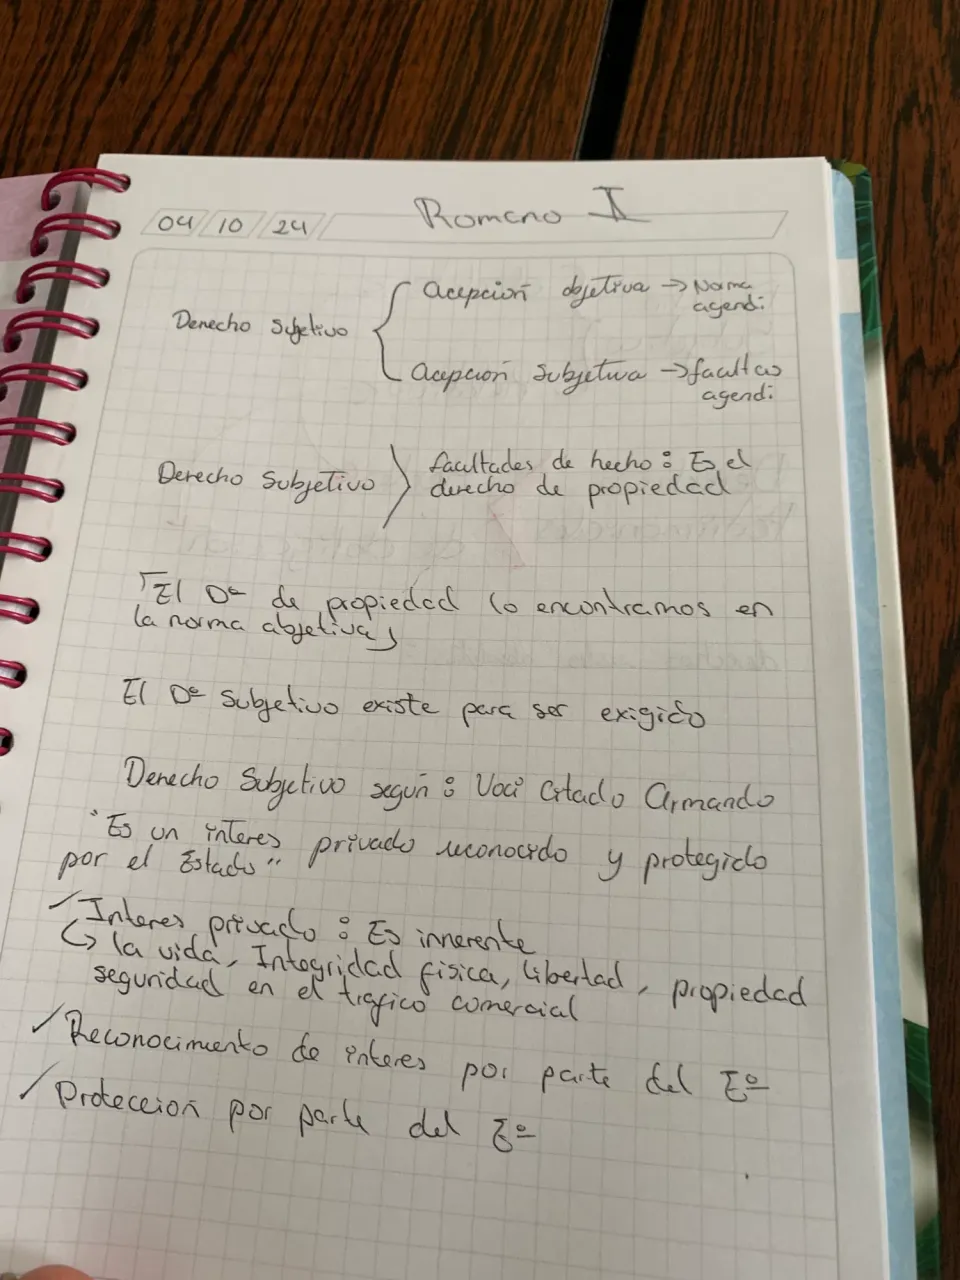 04/10/24 Romano I
Acepción objetiva → Norma
agendi
Derecho Sbjetivo
Acepción Subjetiva → facultas
agendi
facultades de hecho: Es el
Derecho Subjetivo
derecho de propiedad
"El Dº de propiedad lo encontramos en
la norma objetiva"
El Dº Subjetivo existe para ser exigido
Derecho Subjetivo según: Voci Citado Armando
"Es un interes privado reconocido y protegido
por el Estado"
✓ Interes privado: Es innerente
↳ la vida, Integridad física, libertad, propiedad
seguridad en el trafico comercial
✓ Reconocimiento de interes por parte del Eº
✓ Protección por parte del Eº